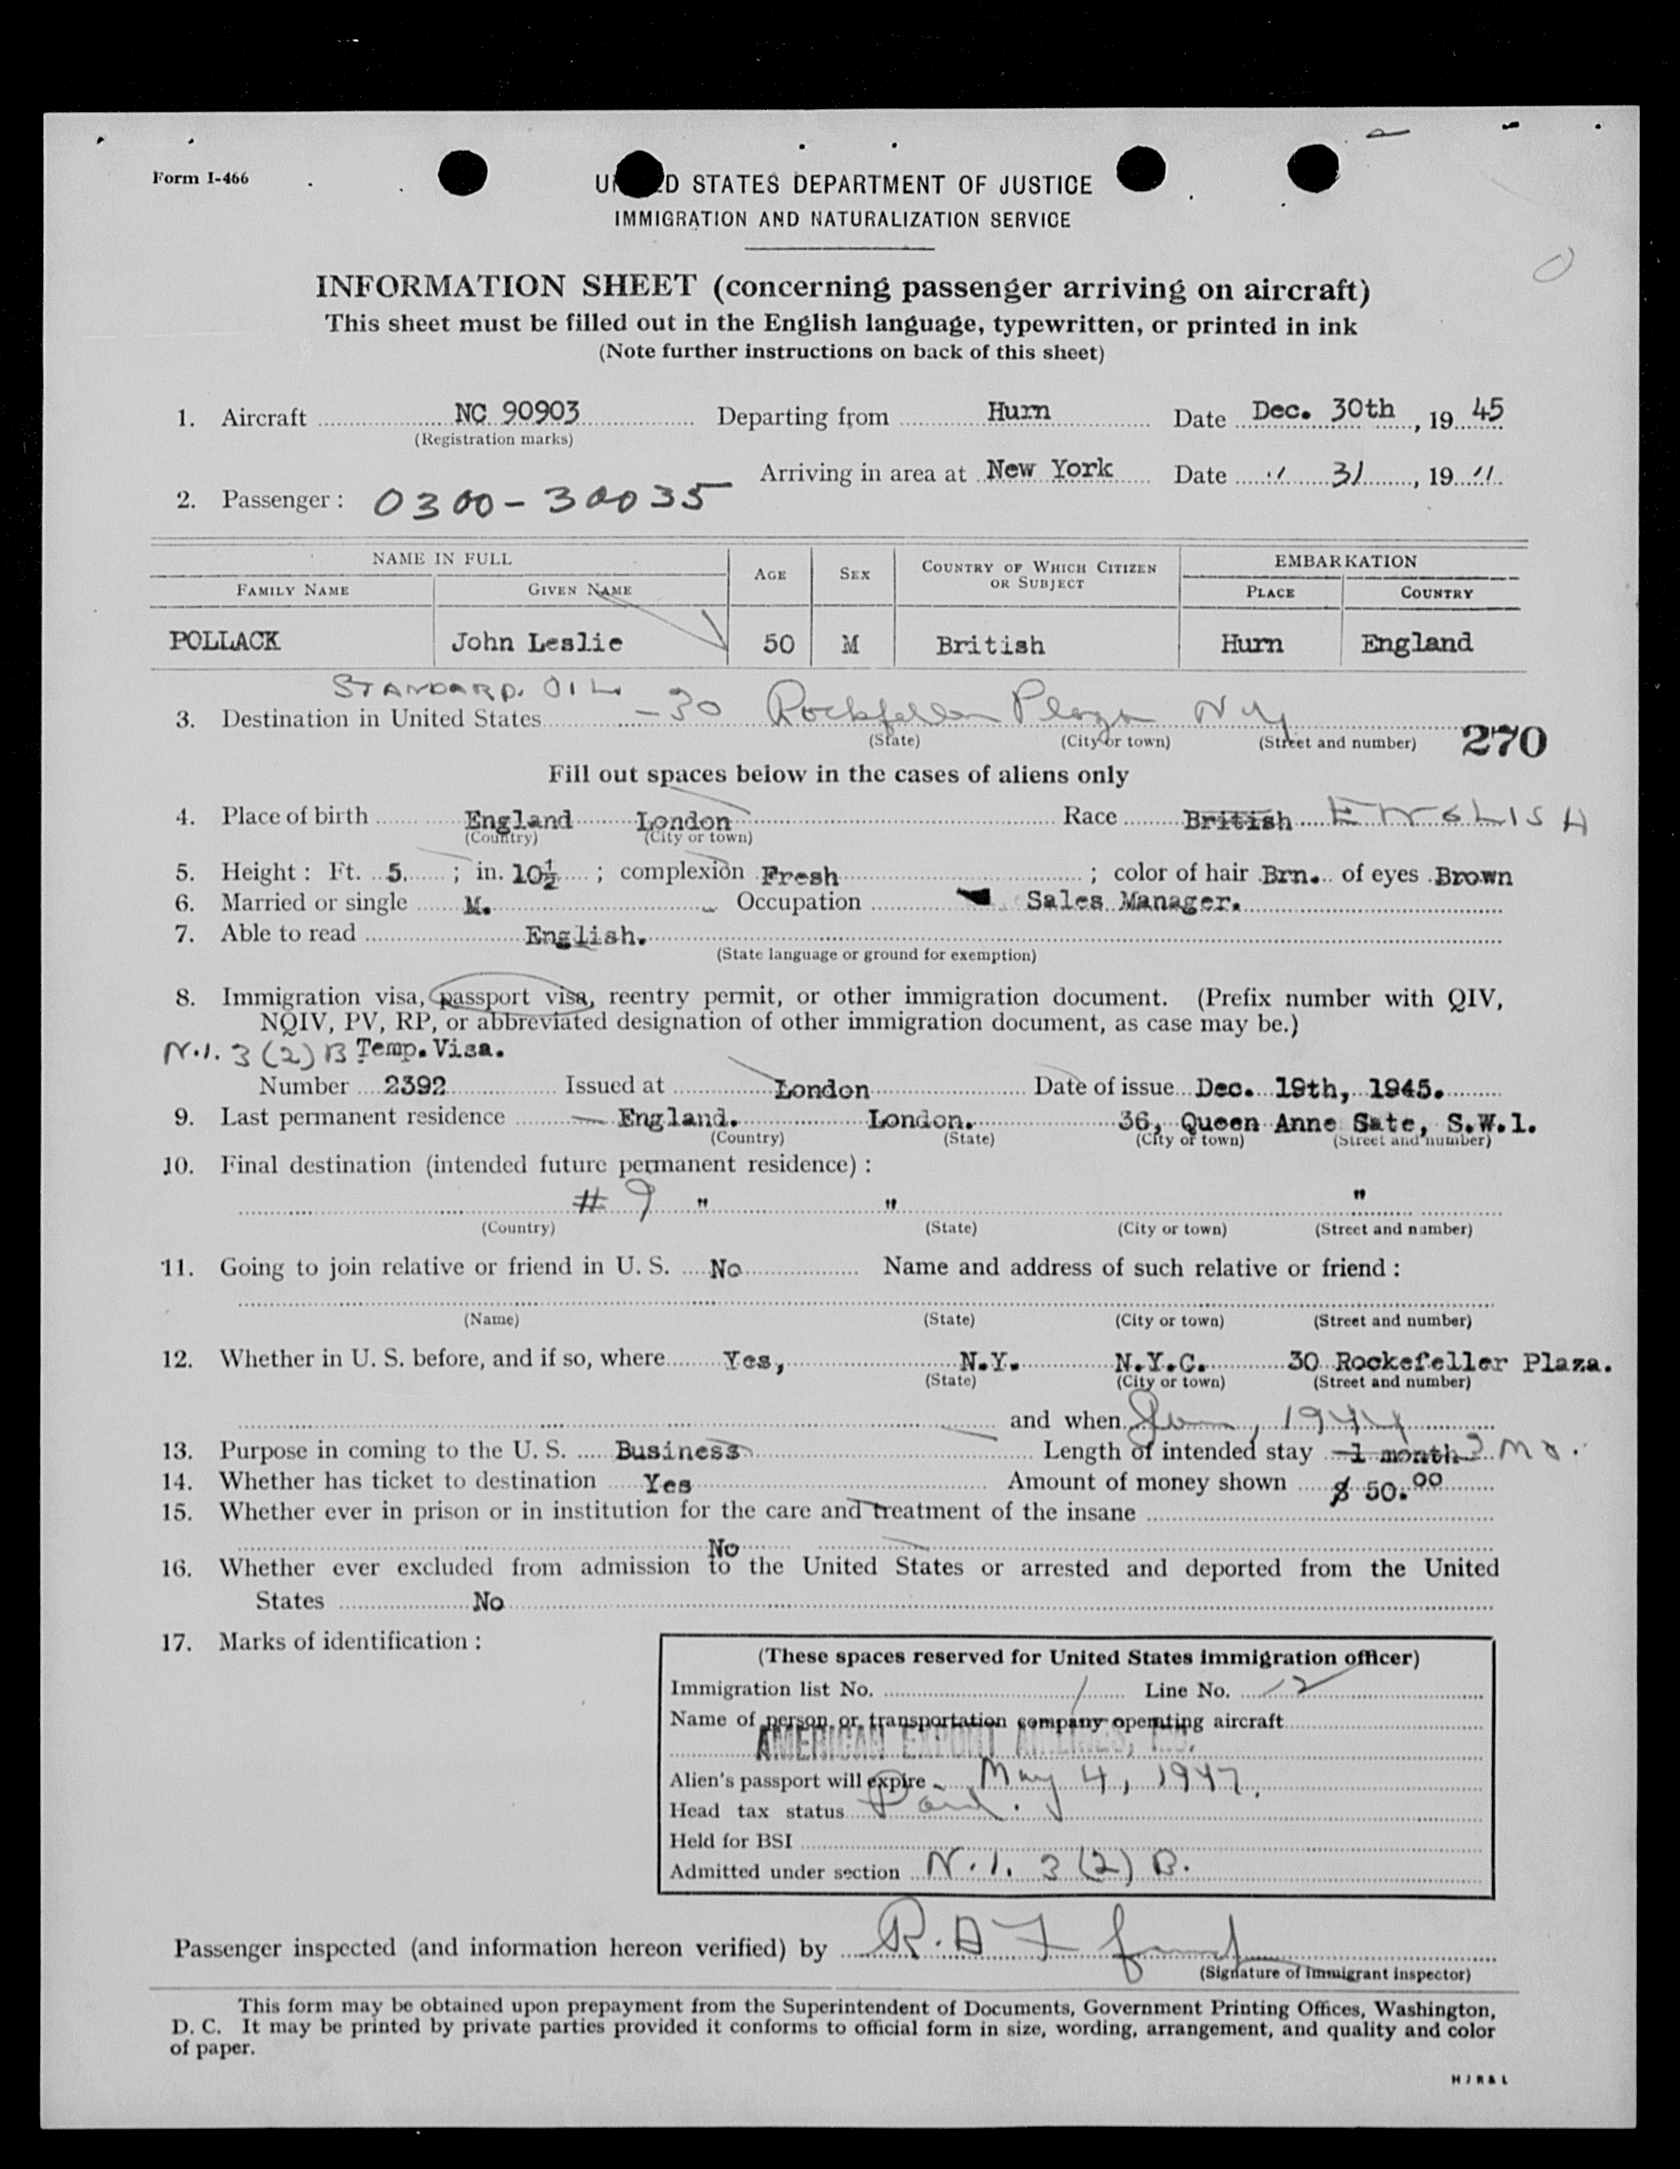 Form I-466
UNITED STATES DEPARTMENT OF JUSTICE
IMMIGRATION AND NATURALIZATION SERVICE
INFORMATION SHEET (concerning passenger arriving on aircraft)
This sheet must be filled out in the English language, typewritten, or printed in ink
(Note further instructions on back of this sheet)
1. Aircraft NC 90903 Departing from Hurn Date Dec. 30th, 19 45
(Registration marks)
Arriving in area at New York Date " 31, 19 "
2. Passenger: 0300-30035
NAME IN FULL EMBARKATION
FAMILY NAME GIVEN NAME AGE SEX COUNTRY OF WHICH CITIZEN OR SUBJECT PLACE COUNTRY
POLLACK John Leslie 50 M British Hurn England
STANDARD OIL
3. Destination in United States - 30 Rockfeller Plaza N Y
(State) (City or town) (Street and number) 270
Fill out spaces below in the cases of aliens only
4. Place of birth England London Race British ENGLISH
(Country) (City or town)
5. Height: Ft. 5. ; in. 10½ ; complexion Fresh ; color of hair Brn. of eyes Brown
6. Married or single M. Occupation Sales Manager.
7. Able to read English.
(State language or ground for exemption)
8. Immigration visa, passport visa, reentry permit, or other immigration document. (Prefix number with QIV,
NQIV, PV, RP, or abbreviated designation of other immigration document, as case may be.)
N.I. 3 (2) B Temp. Visa.
Number 2392 Issued at London Date of issue Dec. 19th, 1945.
9. Last permanent residence England. London. 36, Queen Anne Sate, S.W.1.
(Country) (State) (City or town) (Street and number)
10. Final destination (intended future permanent residence):
# 9 " " "
(Country) (State) (City or town) (Street and number)
11. Going to join relative or friend in U. S. No Name and address of such relative or friend:
(Name) (State) (City or town) (Street and number)
12. Whether in U. S. before, and if so, where Yes, N.Y. N.Y.C. 30 Rockefeller Plaza.
(State) (City or town) (Street and number)
and when 1944
13. Purpose in coming to the U. S. Business Length of intended stay 1 month Mo.
14. Whether has ticket to destination Yes Amount of money shown $ 50.00
15. Whether ever in prison or in institution for the care and treatment of the insane
No
16. Whether ever excluded from admission to the United States or arrested and deported from the United
States No
17. Marks of identification:
(These spaces reserved for United States immigration officer)
Immigration list No. 1 Line No. 12
Name of person or transportation company operating aircraft
AMERICAN EXPORT AIRLINES, INC.
Alien's passport will expire May 4, 1947.
Head tax status Paid.
Held for BSI
Admitted under section N.I. 3 (2) B.
Passenger inspected (and information hereon verified) by
(Signature of immigrant inspector)
This form may be obtained upon prepayment from the Superintendent of Documents, Government Printing Offices, Washington,
D. C. It may be printed by private parties provided it conforms to official form in size, wording, arrangement, and quality and color
of paper.
H J R & L